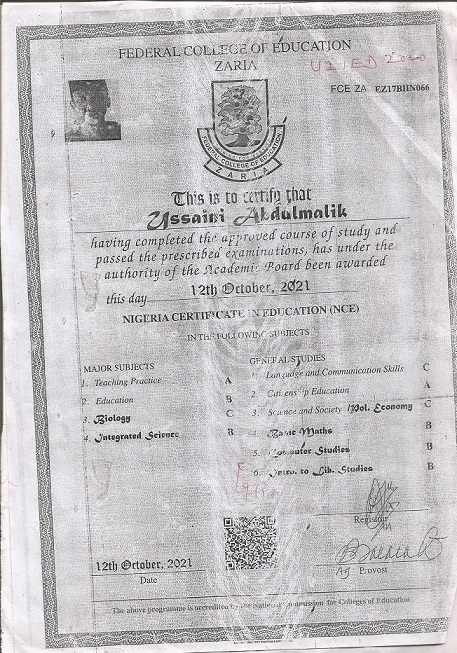 FEDERAL COLLEGE OF EDUCATION
ZARIA
FCE ZA EZ17BIIN066
FEDERAL COLLEGE OF EDUCATION
ZARIA
This is to certify that
Ussaini Abdulmalik
having completed the approved course of study and
passed the prescribed examinations, has under the
authority of the Academic Board been awarded
this day 12th October, 2021
NIGERIA CERTIFICATE IN EDUCATION (NCE)
IN THE FOLLOWING SUBJECTS
MAJOR SUBJECTS
1. Teaching Practice A
2. Education B
3. Biology C
4. Integrated Science B
GENERAL STUDIES
1. Language and Communication Skills C
2. Citizenship Education A
3. Science and Society /Pol. Economy C
4. Basic Maths B
5. Computer Studies B
6. Intro. to Lib. Studies B
Registrar
12th October, 2021
Date
Ag Provost
The above programme is accredited by the National Commission for Colleges of Education